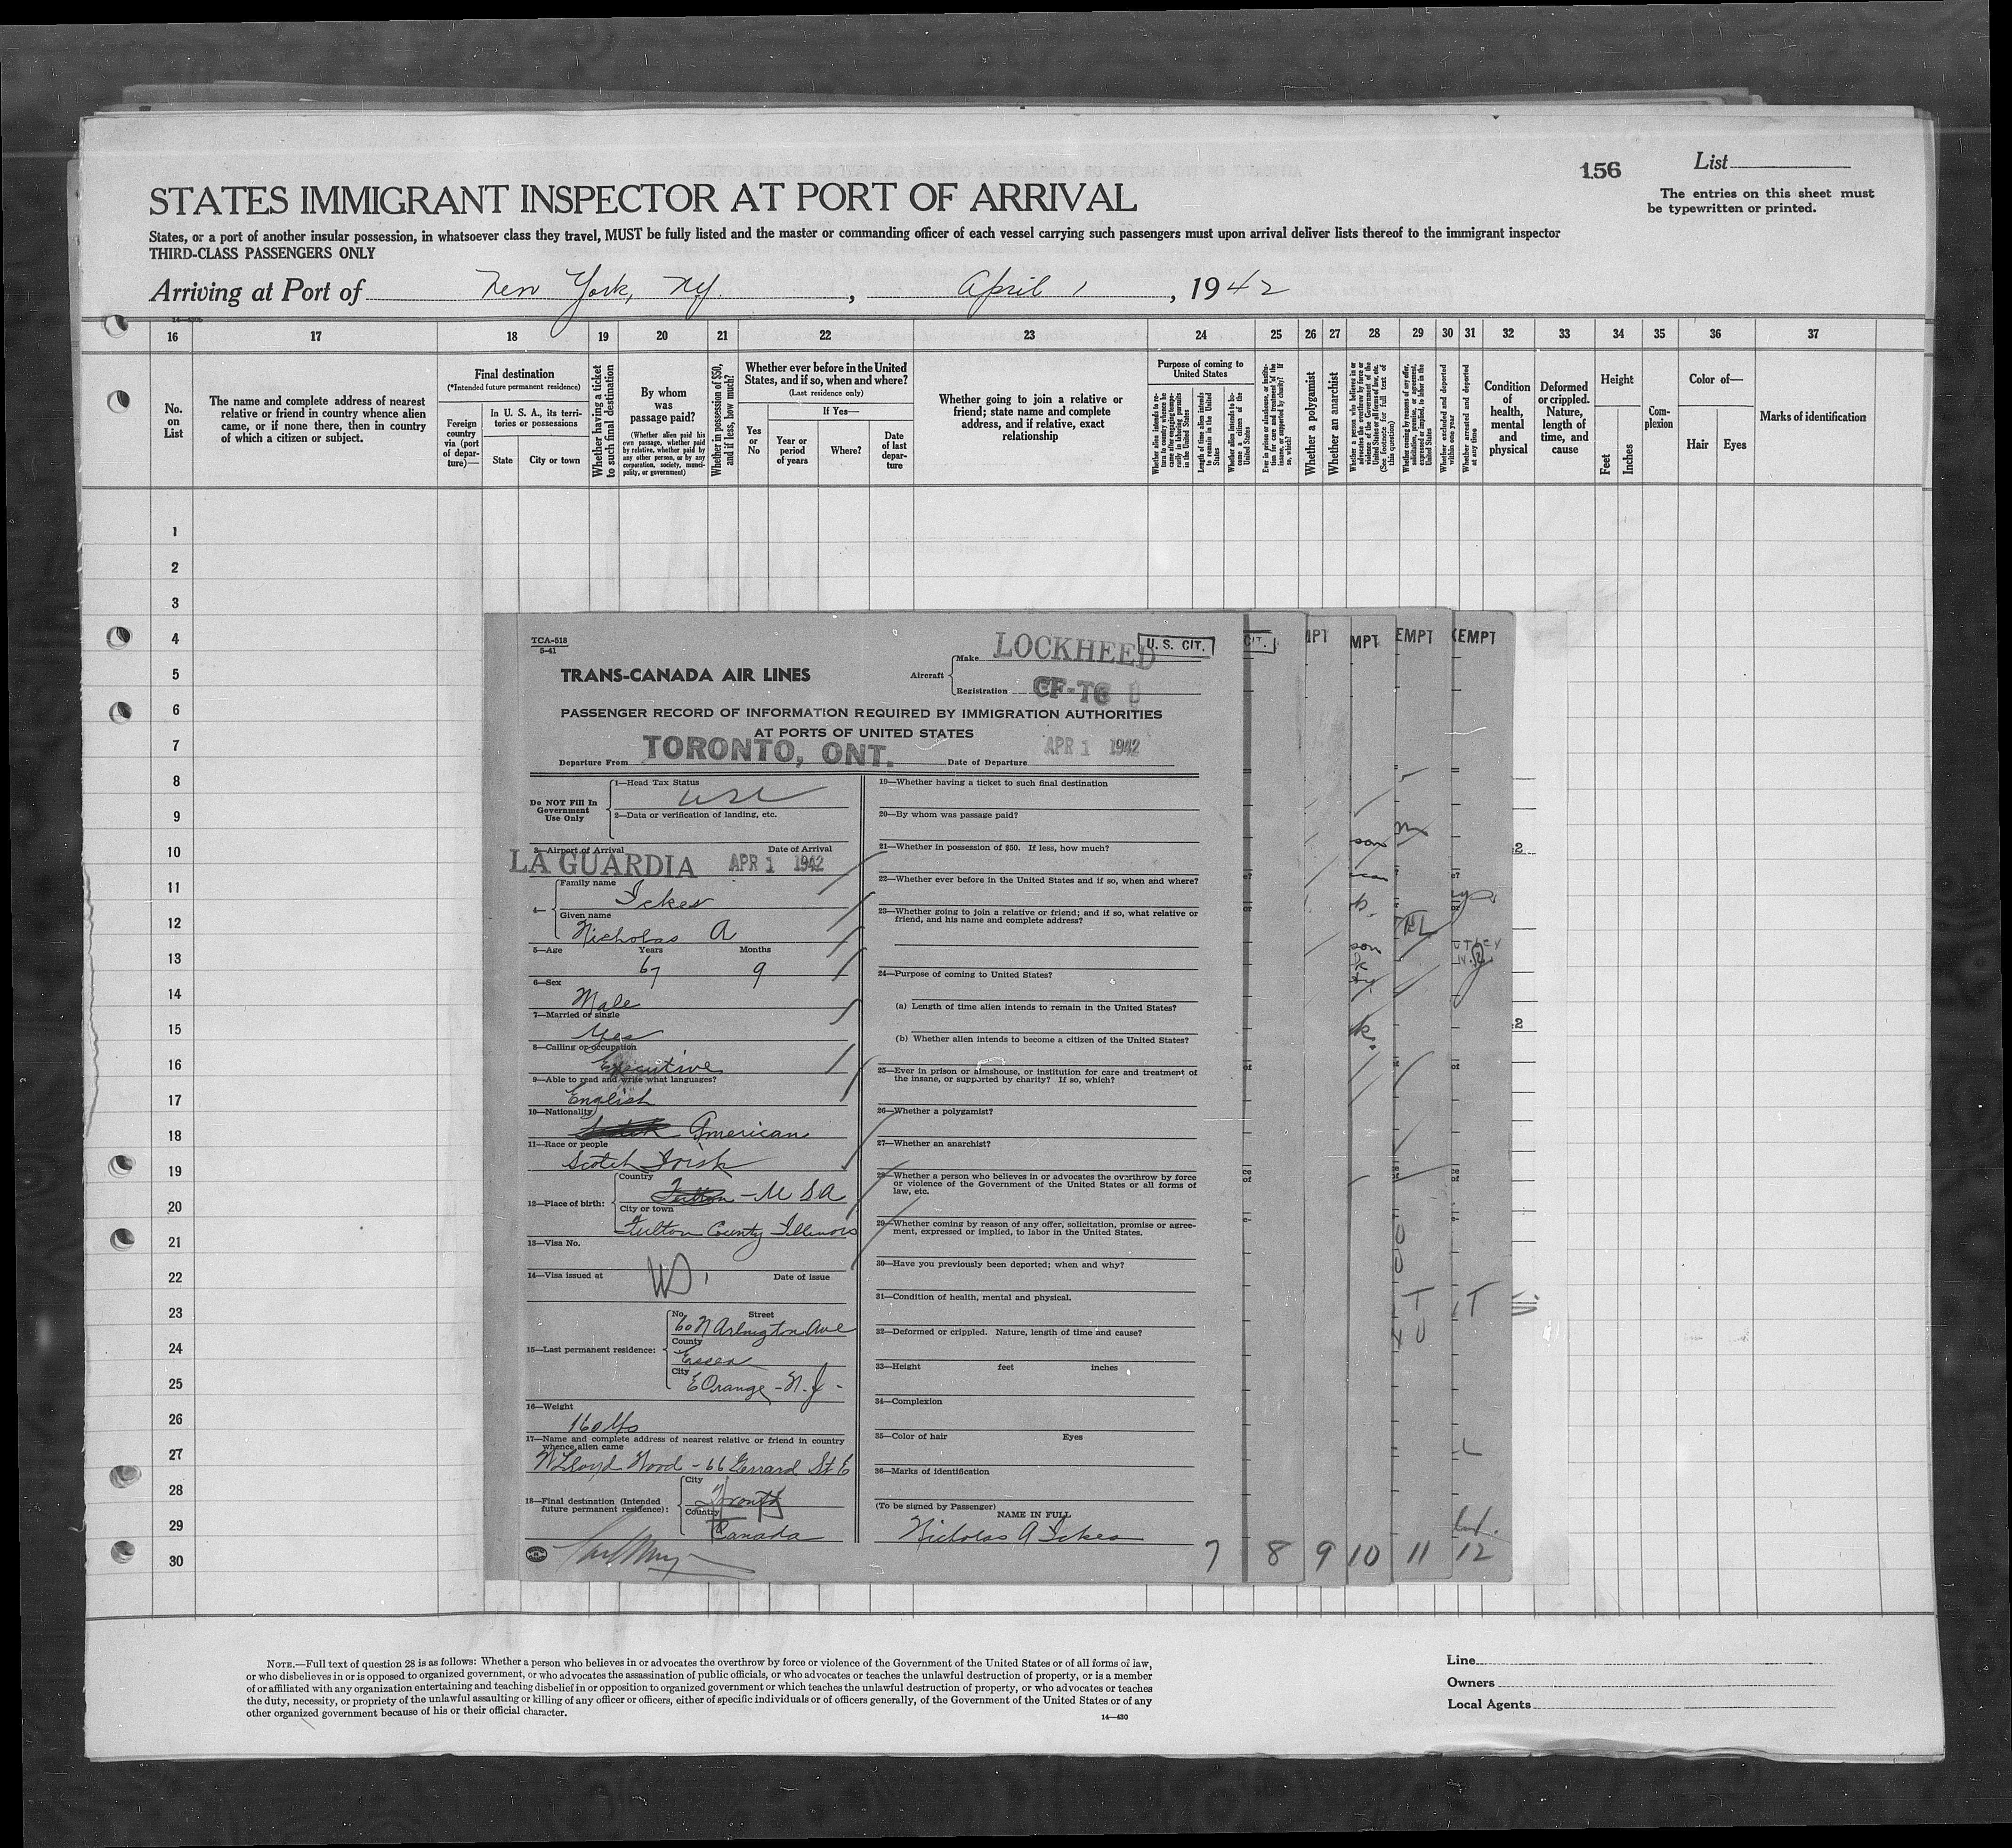 156
List
The entries on this sheet must
be typewritten or printed.
STATES IMMIGRANT INSPECTOR AT PORT OF ARRIVAL
States, or a port of another insular possession, in whatsoever class they travel, MUST be fully listed and the master or commanding officer of each vessel carrying such passengers must upon arrival deliver lists thereof to the immigrant inspector
THIRD-CLASS PASSENGERS ONLY
Arriving at Port of New York, NY. , April 1 , 1942
16 17 18 19 20 21 22 23 24 25 26 27 28 29 30 31 32 33 34 35 36 37
No.
on
List
The name and complete address of nearest
relative or friend in country whence alien
came, or if none there, then in country
of which a citizen or subject.
Final destination
(*Intended future permanent residence)
Foreign
country
via (port
of depar-
ture)—
In U. S. A., its terri-
tories or possessions
State
City or town
Whether having a ticket
to such final destination
By whom
was
passage paid?
(Whether alien paid his
own passage, whether paid
by relative, whether paid by
any other person, or by any
corporation, society, munici-
pality, or government)
Whether in possession of $50,
and if less, how much?
Whether ever before in the United
States, and if so, when and where?
(Last residence only)
Yes
or
No
If Yes—
Year or
period
of years
Where?
Date
of last
depar-
ture
Whether going to join a relative or
friend; state name and complete
address, and if relative, exact
relationship
Purpose of coming to
United States
Length of time alien intends
to remain in the United
States
Whether alien intends to be-
come a citizen of the
United States
Whether a polygamist
Whether an anarchist
Whether excluded and deported
within one year
Whether arrested and deported
at any time
Condition
of
health,
mental
and
physical
Deformed
or crippled.
Nature,
length of
time, and
cause
Height
Feet
Inches
Com-
plexion
Color of—
Hair
Eyes
Marks of identification
1
2
3
4
5
6
7
8
9
10
11
12
13
14
15
16
17
18
19
20
21
22
23
24
25
26
27
28
29
30
TCA-518
5-41
TRANS-CANADA AIR LINES
Aircraft
Make LOCKHEED
U. S. CIT.
Registration CF-TC
CIT.
MPT
EMPT
XEMPT
PASSENGER RECORD OF INFORMATION REQUIRED BY IMMIGRATION AUTHORITIES
AT PORTS OF UNITED STATES
Departure From TORONTO, ONT. Date of Departure APR 1 1942
Do NOT Fill In
Government
Use Only
1—Head Tax Status
2—Data or verification of landing, etc.
3—Airport of Arrival Date of Arrival
LA GUARDIA APR 1 1942
4—
Family name
Ickes
Given name
Nicholas A
5—Age Years Months
67 9
6—Sex
Male
7—Married or single
Yes
8—Calling or occupation
Executive
9—Able to read and write what languages?
English
10—Nationality
American
11—Race or people
Scotch Irish
12—Place of birth:
Country
Fulton - U S A
City or town
Fulton County Illinois
13—Visa No.
14—Visa issued at Date of issue
15—Last permanent residence:
No. Street
60 N Arlington Ave
County
Essex
City
E Orange - N. J -
16—Weight
160 lbs
17—Name and complete address of nearest relative or friend in country
whence alien came
W Lloyd Wood - 66 Gerrard St E
18—Final destination (Intended
future permanent residence):
City
Toronto
Country
Canada
19—Whether having a ticket to such final destination
20—By whom was passage paid?
21—Whether in possession of $50. If less, how much?
22—Whether ever before in the United States and if so, when and where?
23—Whether going to join a relative or friend; and if so, what relative or
friend, and his name and complete address?
24—Purpose of coming to United States?
(a) Length of time alien intends to remain in the United States?
(b) Whether alien intends to become a citizen of the United States?
25—Ever in prison or almshouse, or institution for care and treatment of
the insane, or supported by charity? If so, which?
26—Whether a polygamist?
27—Whether an anarchist?
28—Whether a person who believes in or advocates the overthrow by force
or violence of the Government of the United States or all forms of
law, etc.
29—Whether coming by reason of any offer, solicitation, promise or agree-
ment, expressed or implied, to labor in the United States.
30—Have you previously been deported; when and why?
31—Condition of health, mental and physical.
32—Deformed or crippled. Nature, length of time and cause?
33—Height feet inches
34—Complexion
35—Color of hair Eyes
36—Marks of identification
(To be signed by Passenger)
NAME IN FULL
Nicholas A Ickes
7 8 9 10 11 12
NOTE.—Full text of question 28 is as follows: Whether a person who believes in or advocates the overthrow by force or violence of the Government of the United States or of all forms of law,
or who disbelieves in or is opposed to organized government, or who advocates the assassination of public officials, or who advocates or teaches the unlawful destruction of property, or is a member
of or affiliated with any organization entertaining and teaching disbelief in or opposition to organized government or which teaches the unlawful destruction of property, or who advocates or teaches
the duty, necessity, or propriety of the unlawful assaulting or killing of any officer or officers, either of specific individuals or of officers generally, of the Government of the United States or of any
other organized government because of his or their official character.
14—430
Line
Owners
Local Agents